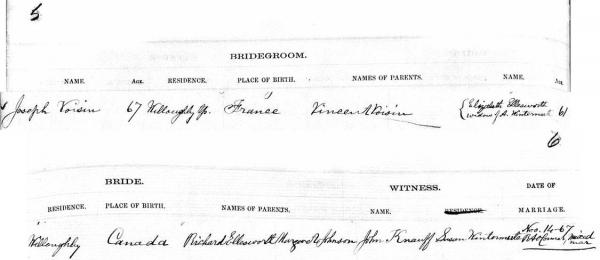 5
BRIDEGROOM.
NAME. AGE. RESIDENCE. PLACE OF BIRTH. NAMES OF PARENTS. NAME. AGE
Joseph Voisin 67 Willoughby Tp. France Vincent Voisin { Elizabeth Ellesworth 61
widow of A. Wintermute
6
BRIDE. WITNESS. DATE OF
RESIDENCE. PLACE OF BIRTH. NAMES OF PARENTS. NAME. RESIDENCE. MARRIAGE.
Willoughby Canada Richard Ellesworth Johnson John Knauff Susan Wintermute Nov. 14 - 67
mixed
mar